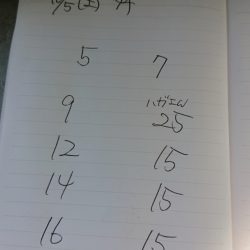 5 7
9 ハガエム
25
12 15
14 15
16 15